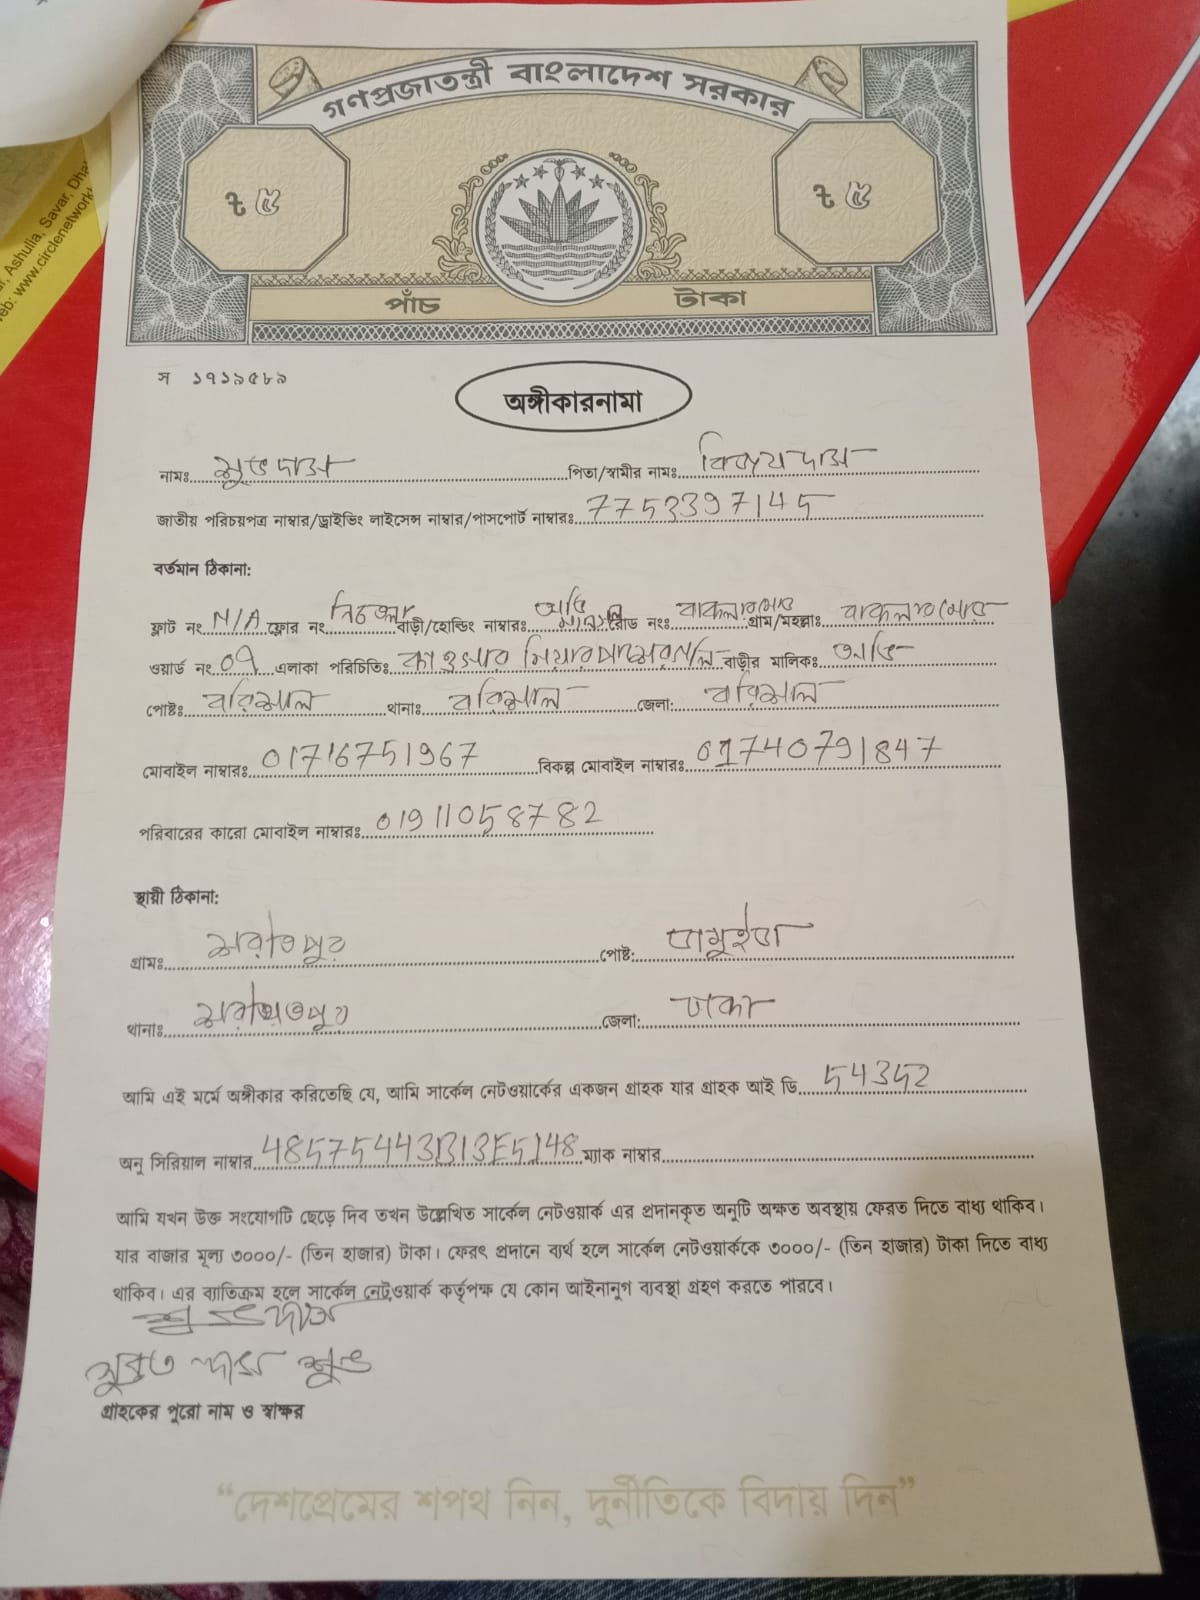 র, Ashulia, Savar, Dha
eb: www.circlenetwork
গণপ্রজাতন্ত্রী বাংলাদেশ সরকার
৳ ৫ ৳ ৫
পাঁচ টাকা
স ১৭১৯৫৮৯
অঙ্গীকারনামা
নামঃ শুভ দাস পিতা/স্বামীর নামঃ বিজয় দাস
জাতীয় পরিচয়পত্র নাম্বার/ড্রাইভিং লাইসেন্স নাম্বার/পাসপোর্ট নাম্বারঃ 7753397145
বর্তমান ঠিকানা:
ফ্লাট নং N/A ফ্লোর নং নিচতলা বাড়ী/হোল্ডিং নাম্বারঃ রোড নং গ্রাম/মহল্লাঃ
ওয়ার্ড নং 09 এলাকা পরিচিতিঃ বাড়ীর মালিকঃ
পোষ্টঃ বরিশাল থানাঃ বরিশাল জেলা: বরিশাল
মোবাইল নাম্বারঃ 01716751967 বিকল্প মোবাইল নাম্বারঃ 01740791847
পরিবারের কারো মোবাইল নাম্বারঃ 01911058782
স্থায়ী ঠিকানা:
গ্রামঃ পোষ্ট:
থানাঃ জেলা: ঢাকা
আমি এই মর্মে অঙ্গীকার করিতেছি যে, আমি সার্কেল নেটওয়ার্কের একজন গ্রাহক যার গ্রাহক আই ডি 54352
অনু সিরিয়াল নাম্বার 48575443B13E5148 ম্যাক নাম্বার
আমি যখন উক্ত সংযোগটি ছেড়ে দিব তখন উল্লেখিত সার্কেল নেটওয়ার্ক এর প্রদানকৃত অনুটি অক্ষত অবস্থায় ফেরত দিতে বাধ্য থাকিব।
যার বাজার মূল্য ৩০০০/- (তিন হাজার) টাকা। ফেরৎ প্রদানে ব্যর্থ হলে সার্কেল নেটওয়ার্ককে ৩০০০/- (তিন হাজার) টাকা দিতে বাধ্য
থাকিব। এর ব্যাতিক্রম হলে সার্কেল নেটওয়ার্ক কর্তৃপক্ষ যে কোন আইনানুগ ব্যবস্থা গ্রহণ করতে পারবে।
শুভ দাস
সুব্রত দাস শুভ
গ্রাহকের পুরো নাম ও স্বাক্ষর
“দেশপ্রেমের শপথ নিন, দুর্নীতিকে বিদায় দিন”